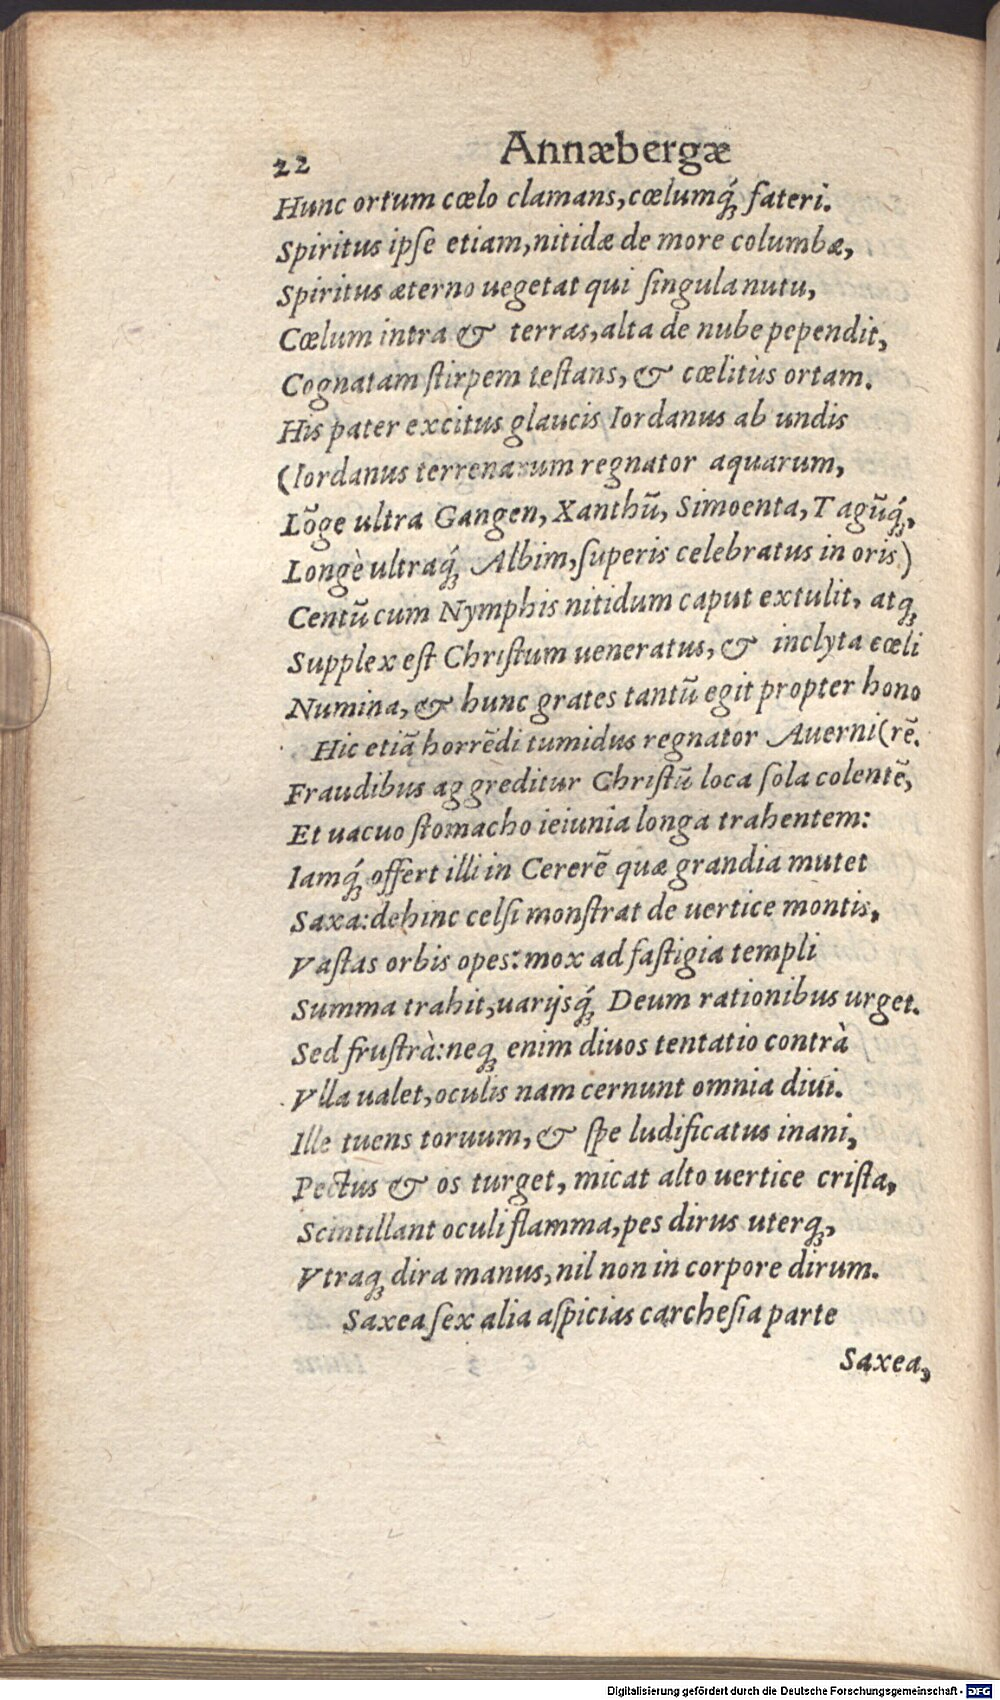 22 Annæbergæ
Hunc ortum cœlo clamans, cœlumq́; fateri.
Spiritus ipſe etiam, nitidæ de more columbæ,
Spiritus æterno uegetat qui ſingula nutu,
Cœlum intra & terras, alta de nube pependit,
Cognatam ſtirpem teſtans, & cœlitùs ortam.
His pater excitus glaucis Iordanus ab undis
(Iordanus terrenarum regnator aquarum,
Lõge ultra Gangen, Xanthũ, Simoenta, Tagũq́;,
Longè ultraq́; Albim, ſuperis celebratus in oris)
Centũ cum Nymphis nitidum caput extulit, atq;
Supplex eſt Chriſtum ueneratus, & inclyta cœli
Numina, & hunc grates tantũ egit propter hono
Hic etiã horrẽdi tumidus regnator Auerni (rẽ.
Fraudibus aggreditur Chriſtũ loca ſola colentẽ,
Et uacuo ſtomacho ieiunia longa trahentem:
Iamq́; offert illi in Cererẽ quæ grandia mutet
Saxa: dehinc celſi monſtrat de uertice montis,
Vaſtas orbis opes: mox ad faſtigia templi
Summa trahit, uarijsq́; Deum rationibus urget.
Sed fruſtrà: neq; enim diuos tentatio contrà
Vlla ualet, oculis nam cernunt omnia diui.
Ille tuens toruum, & ſpe ludificatus inani,
Pectus & os turget, micat alto uertice criſta,
Scintillant oculi flamma, pes dirus uterq;,
Vtraq; dira manus, nil non in corpore dirum.
Saxea ſex alia aſpicias carcheſia parte
Saxea,
Digitalisierung gefördert durch die Deutsche Forschungsgemeinschaft - DFG